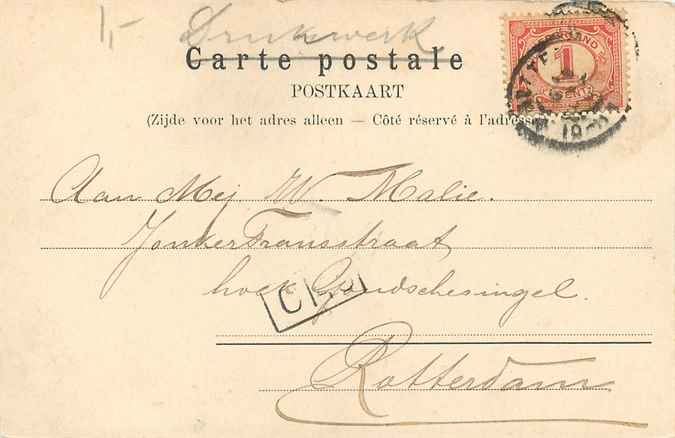 1,- Drukwerk
Carte postale
POSTKAART
(Zijde voor het adres alleen — Côté réservé à l'adresse
1
CENT
Aan Mej W. Malie.
Jonker Fransstraat
hoek Goudschesingel.
Rotterdam